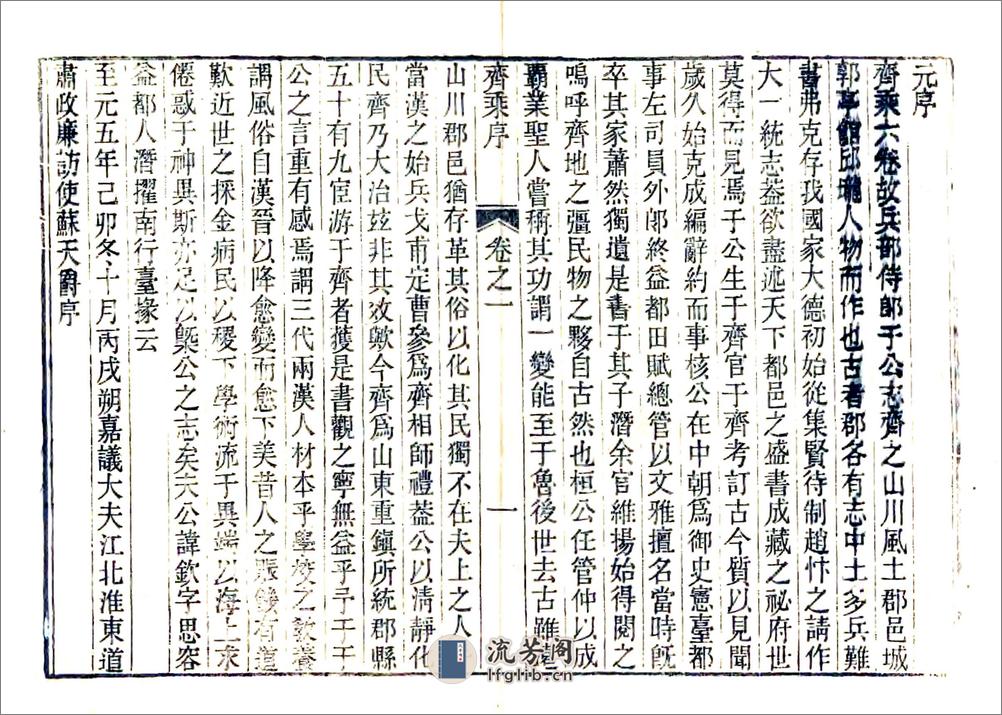 元序
齊乘六卷故兵部侍郎于公志齊之山川風土郡邑城
郭亭館邱壠人物而作也古者郡各有志中土多兵難
書弗克存我國家大德初始從集賢待制趙忭之請作
大一統志葢欲盡述天下都邑之盛書成藏之祕府世
莫得而見焉于公生于齊官于齊考訂古今質以見聞
歲久始克成編辭約而事核公在中朝爲御史憲臺都
事左司員外郎終益都田賦總管以文雅擅名當時旣
卒其家蕭然獨遺是書于其子潛余官維揚始得閱之
嗚呼齊地之彊民物之夥自古然也桓公任管仲以成
霸業聖人嘗稱其功謂一變能至于魯後世去古雖遠
齊乘序
卷之一
一
山川郡邑猶存革其俗以化其民獨不在夫上之人乎
當漢之始兵戈甫定曹參爲齊相師禮葢公以淸靜化
民齊乃大治兹非其效歟今齊爲山東重鎭所統郡縣
五十有九宦游于齊者獲是書觀之寧無益乎予于于
公之言重有感焉謂三代兩漢人材本乎學校之敎養
謂風俗自漢晉以降愈變而愈下美昔人之賑饑有道
歎近世之採金病民以稷下學術流于異端以海上求
僊惑于神異斯亦足以槩公之志矣夫公諱欽字思容
益都人潛擢南行臺掾云
至元五年己卯冬十月丙戌朔嘉議大夫江北淮東道
肅政廉訪使蘇天爵序
流芳阁
lfglib.cn